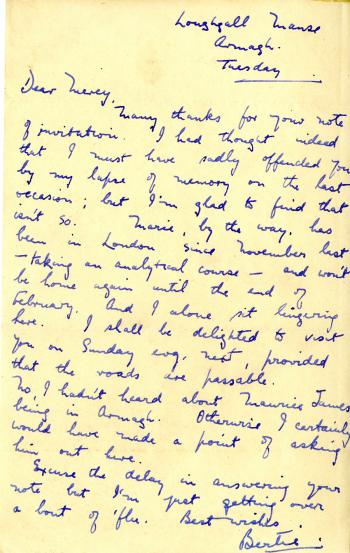 Loughgall Manse
Armagh.
Tuesday.
Dear Mercy,
Many thanks for your note
of invitation. I had thought indeed
that I must have sadly offended you
by my lapse of memory on the last
occasion; but I'm glad to find that
isn't so. Marie, by the way, has
been in London since November last
– taking an analytical course – and won't
be home again until the end of
February. And I alone sit lingering
here. I shall be delighted to visit
you on Sunday evg. next, provided
that the roads are passable.
No, I hadn't heard about Maurice James
being in Armagh. Otherwise I certainly
would have made a point of asking
him out here.
Excuse the delay in answering your
note but I'm just getting over
a bout of 'flu. Best wishes.
Bertie.